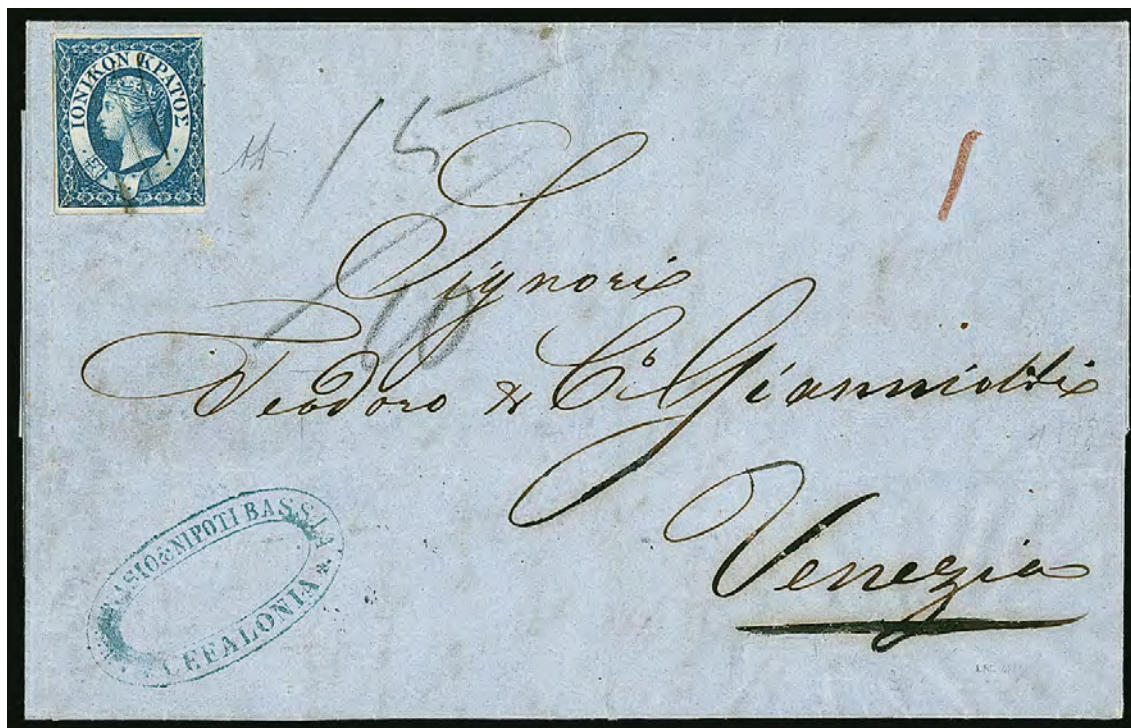 ΙΟΝΙΚΟΝ ΚΡΑΤΟΣ
15
1
Signori
10
Teodoro & Cº Gianniotti
Venezia
& NIPOTI BASSIA
CEFALONIA